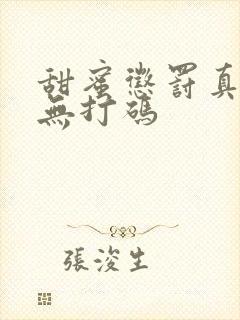 甜蜜懲罰真
無打碼
張浚生